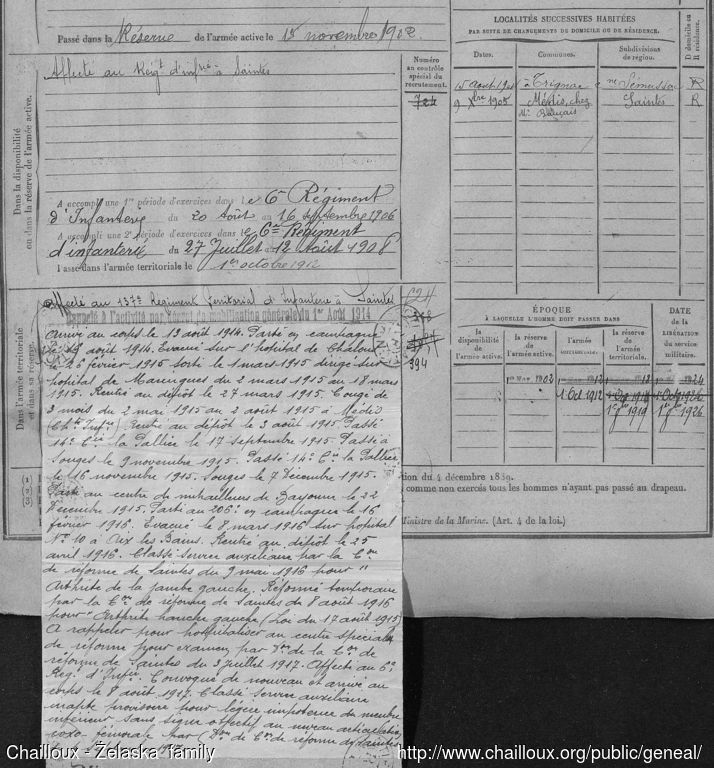 Passé dans la Réserve de l'armée active le 15 novembre 1902
LOCALITÉS SUCCESSIVES HABITÉES
PAR SUITE DE CHANGEMENTS DE DOMICILE OU DE RÉSIDENCE.
D domicile ou R résidence.
Dates.
Communes.
Subdivisions de région.
Numéro au contrôle spécial du recrutement.
724
Affecté au Rég.t d'inf.rie à Saintes
15 août
Trignac
R
9 Xbre 1905
Médis, chez
Saintes
R
Dans la disponibilité ou dans la réserve de l'armée active.
A accompli une 1re période d'exercices dans le 6e Régiment
d'Infanterie du 20 août au 16 septembre 1906
A accompli une 2e période d'exercices dans le 6e Régiment
d'infanterie du 27 Juillet au 12 Août 1908
Passé dans l'armée territoriale le 1er octobre 1912
Dans l'armée territoriale et dans sa réserve.
Affecté au 137e Régiment territorial d'Infanterie à Saintes
Rappelé à l'activité par décret de mobilisation générale du 1er Août 1914
394
ÉPOQUE
À LAQUELLE L'HOMME DOIT PASSER DANS
DATE DE LA LIBÉRATION du service militaire.
la disponibilité de l'armée active.
la réserve de l'armée active.
l'armée territoriale.
la réserve de l'armée territoriale.
1er Nov. 1902
1912
1918
1924
1er Oct 1912
1919
1926
Arrivé au corps le 13 août 1914. Parti en campagne
le août 1914. Evacué sur l'hospital de Chalons
le 26 février 1915 sorti le 1 mars 1915 dirigé sur
hospital de Maringues du 2 mars 1915 au 18 mars
1915. Rentré au dépôt le 27 mars 1915. Congé de
3 mois du 2 mai 1915 au 2 août 1915 à Médis
(Ch.te Inf.re) Rentré au dépôt le 3 août 1915 Passé
14e Cie la Pallice le 17 septembre 1915. Passé à
Souges le 9 novembre 1915. Passé 14e Cie la Pallice
le 16 novembre 1915. Souges le 7 Décembre 1915.
Passé au centre de mitrailleurs de Bayonne le 22
Décembre 1915. Parti au 206e en campagne le 16
février 1916. Evacué le 8 mars 1916 sur hospital
No 10 à Aix les Bains. Rentré au dépôt le 25
avril 1916. Classé service auxiliaire par la Con
de réforme de Saintes du 9 mai 1916 pour "
Arthrite de la jambe gauche. Réformé temporaire
par la Con de réforme de Saintes du 8 août 1916
pour "Arthrite hanche gauche (Loi du 17 août 1915)
A rappeler pour hospitaliser au centre spécial
de réforme pour examen par Don de la Con de
réforme de Saintes du 3 Juillet 1917. Affecté au 6e
Rég.t d'Inf.rie Convoqué de nouveau et arrivé au
corps le 8 août 1917. Classé Service auxiliaire
inapte provisoire pour légère impotence du membre
inférieur sans signe objectif au niveau articulation
coxo-fémorale par (Don de Con de réforme de Saintes
1
2
3
tion du 4 décembre 1889.
comme non exercés tous les hommes n'ayant pas passé au drapeau.
Ministre de la Marine. (Art. 4 de la loi.)
Chailloux - Żelaska family
http://www.chailloux.org/public/geneal/